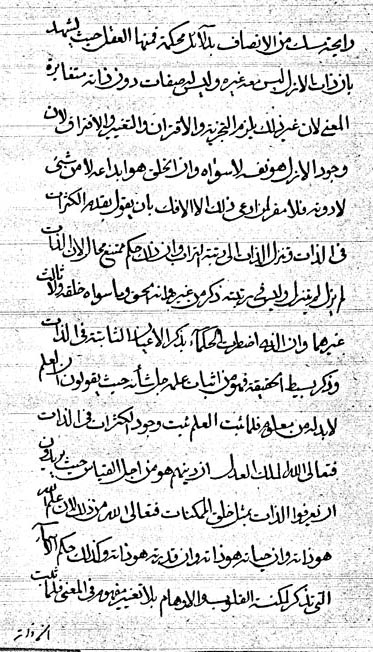 رايحة مسك من الانصاف بدلائل محكمة فمنها العقل حيث يشهد
بان ذات الازل ليس معه غيره وليس له صفات دون ذاته متغايرة
المعنى لان غير ذلك يلزم التجزية والاقتران والتغيير والافتراق لان
وجود الازل هو نفسه لا سواه وان الخلق هو ابداعه لا من شىء
لا دونه فلا مفر لمن ادعى ذلك الا الافك بان يقول بقدم الكثرات
فى الذات وتنزل الذات الى رتبة التراب وان ذلك حكم ممتنع محال لان الذات
لم يزل لم يتنزل وليس فى رتبته ذكر من غيره وانه لحق وما سواه خلقه ولا ثالث
غيرهما وان الذى اضطر الحكماء بذكر الاعيان الثابتة فى الذات
وذكر بسيط الحقيقة فهو من اثبات علمه جل شأنه حيث يقولون ان العلم
لابد له من معلوم فلما ثبت العلم ثبت وجود الكثرات فى الذات
فتعالى الله الملك العدل از دينهم هو من اجل القياس حيث يريدون
ان يعرفوا الذات بمثل خلق الممكنات فتعالى الله من ذلك لان علم الله
هو ذاته وان حياته هو ذاته وان قدرته هو ذاته وكذلك حكم الاسماء
التى تذكر لمكنة القلوب والاوهام بلا تغيير مفهوم فى المعنى فلما ثبت